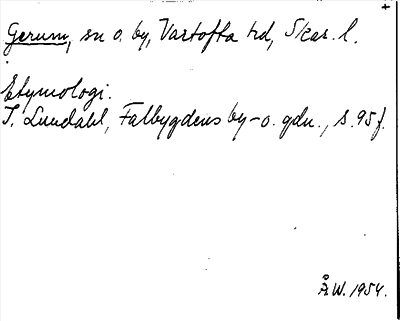 +
Gerum, sn o. by, Vartofta hd, Skar. l.
Etymologi.
I. Lundahl, Falbygdens by- o. gdn., s. 95 f.
Å W. 1954.